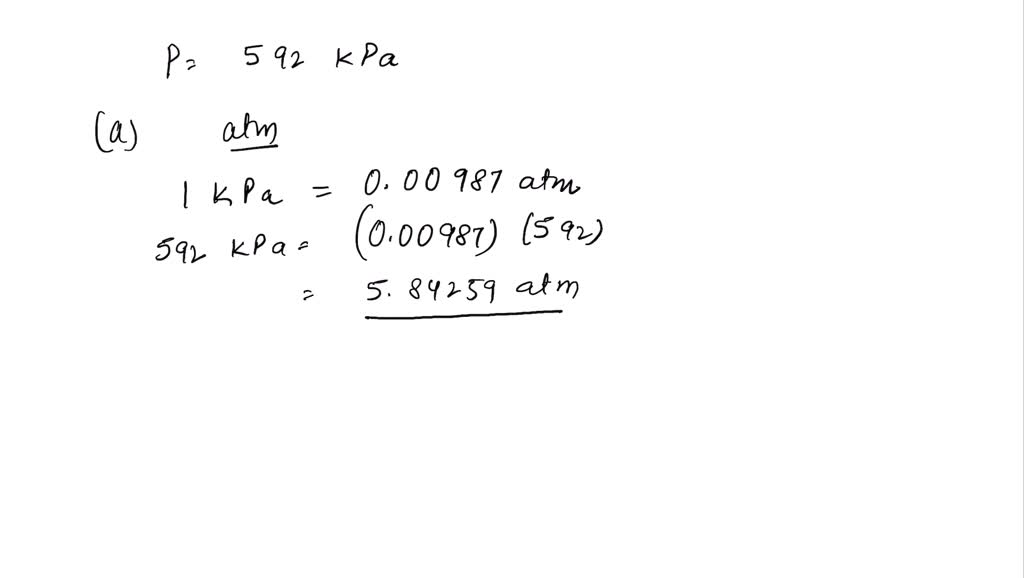 P= 592 kPa
(a) atm
1 kPa = 0.00987 atm
592 kPa = (0.00987) (592)
= 5.84259 atm